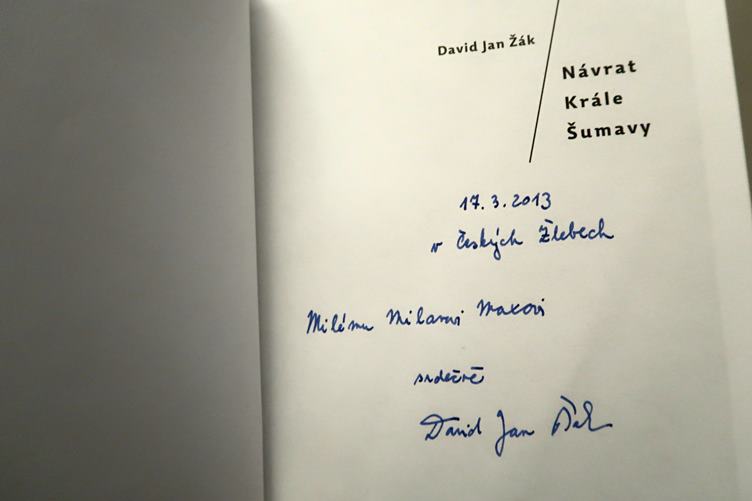 David Jan Žák
Návrat
Krále
Šumavy
17. 3. 2013
v Českých Žlebech
Milému Milanovi Maxovi
srdečně
David Jan Žák